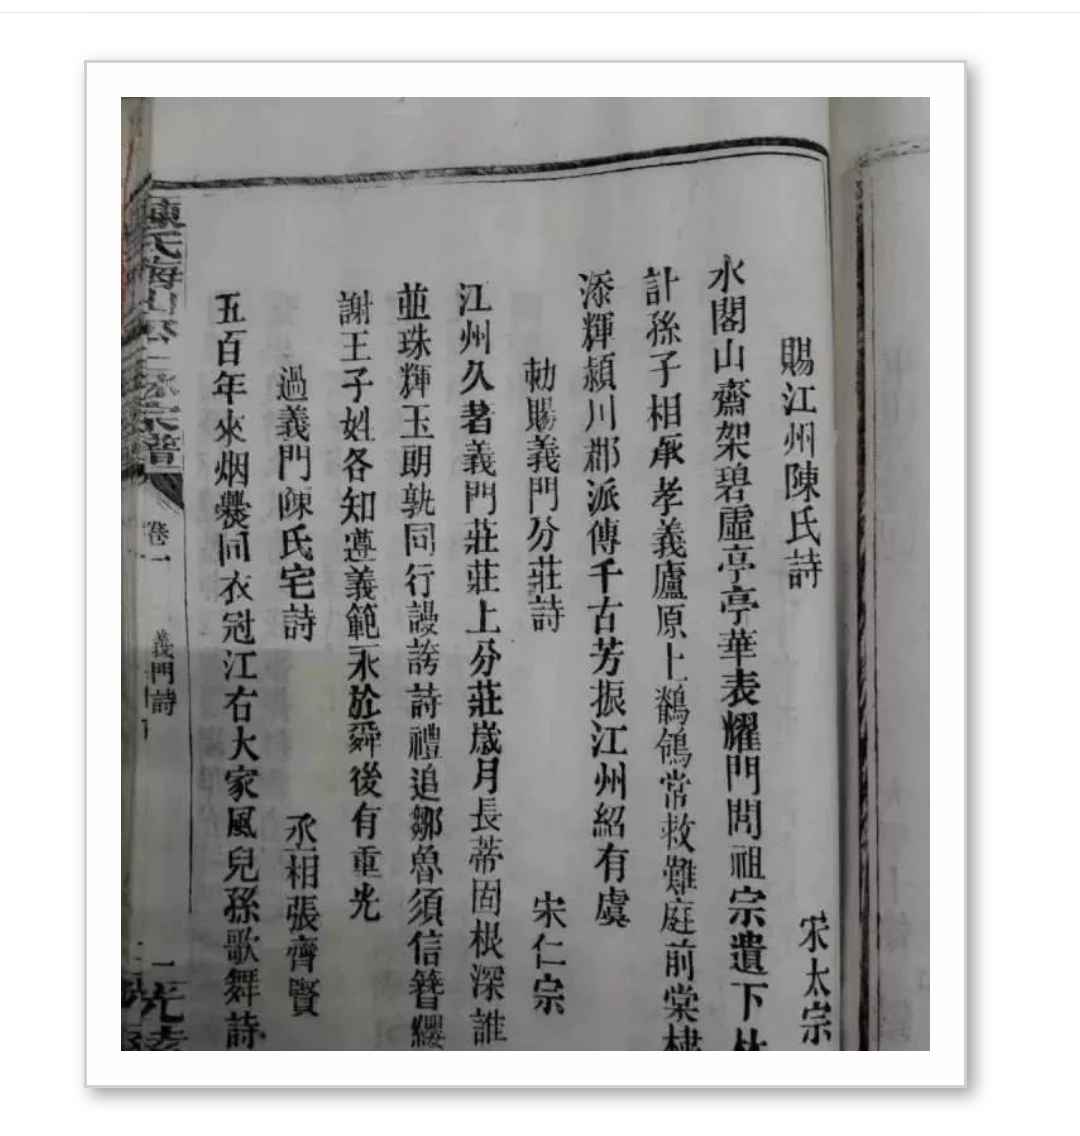 賜江州陳氏詩 宋太宗
水閣山齋架碧虛亭亭華表耀門閭祖宗遺下
計孫子相承孝義廬原上鶺鴒常救難庭前棠棣
添輝潁川郡派傳千古芳振江州紹有虞
勅賜義門分莊詩 宋仁宗
江州久著義門莊莊上分莊歲月長蒂固根深誰
並珠輝玉朗孰同行謾誇詩禮追鄒魯須信簪纓
謝王子姓各知遵義範永於舜後有重光
過義門陳氏宅詩 丞相張齊賢
五百年來烟爨同衣冠江右大家風兒孫歌舞詩
陳氏海山公三脉宗譜
卷一
義門詩